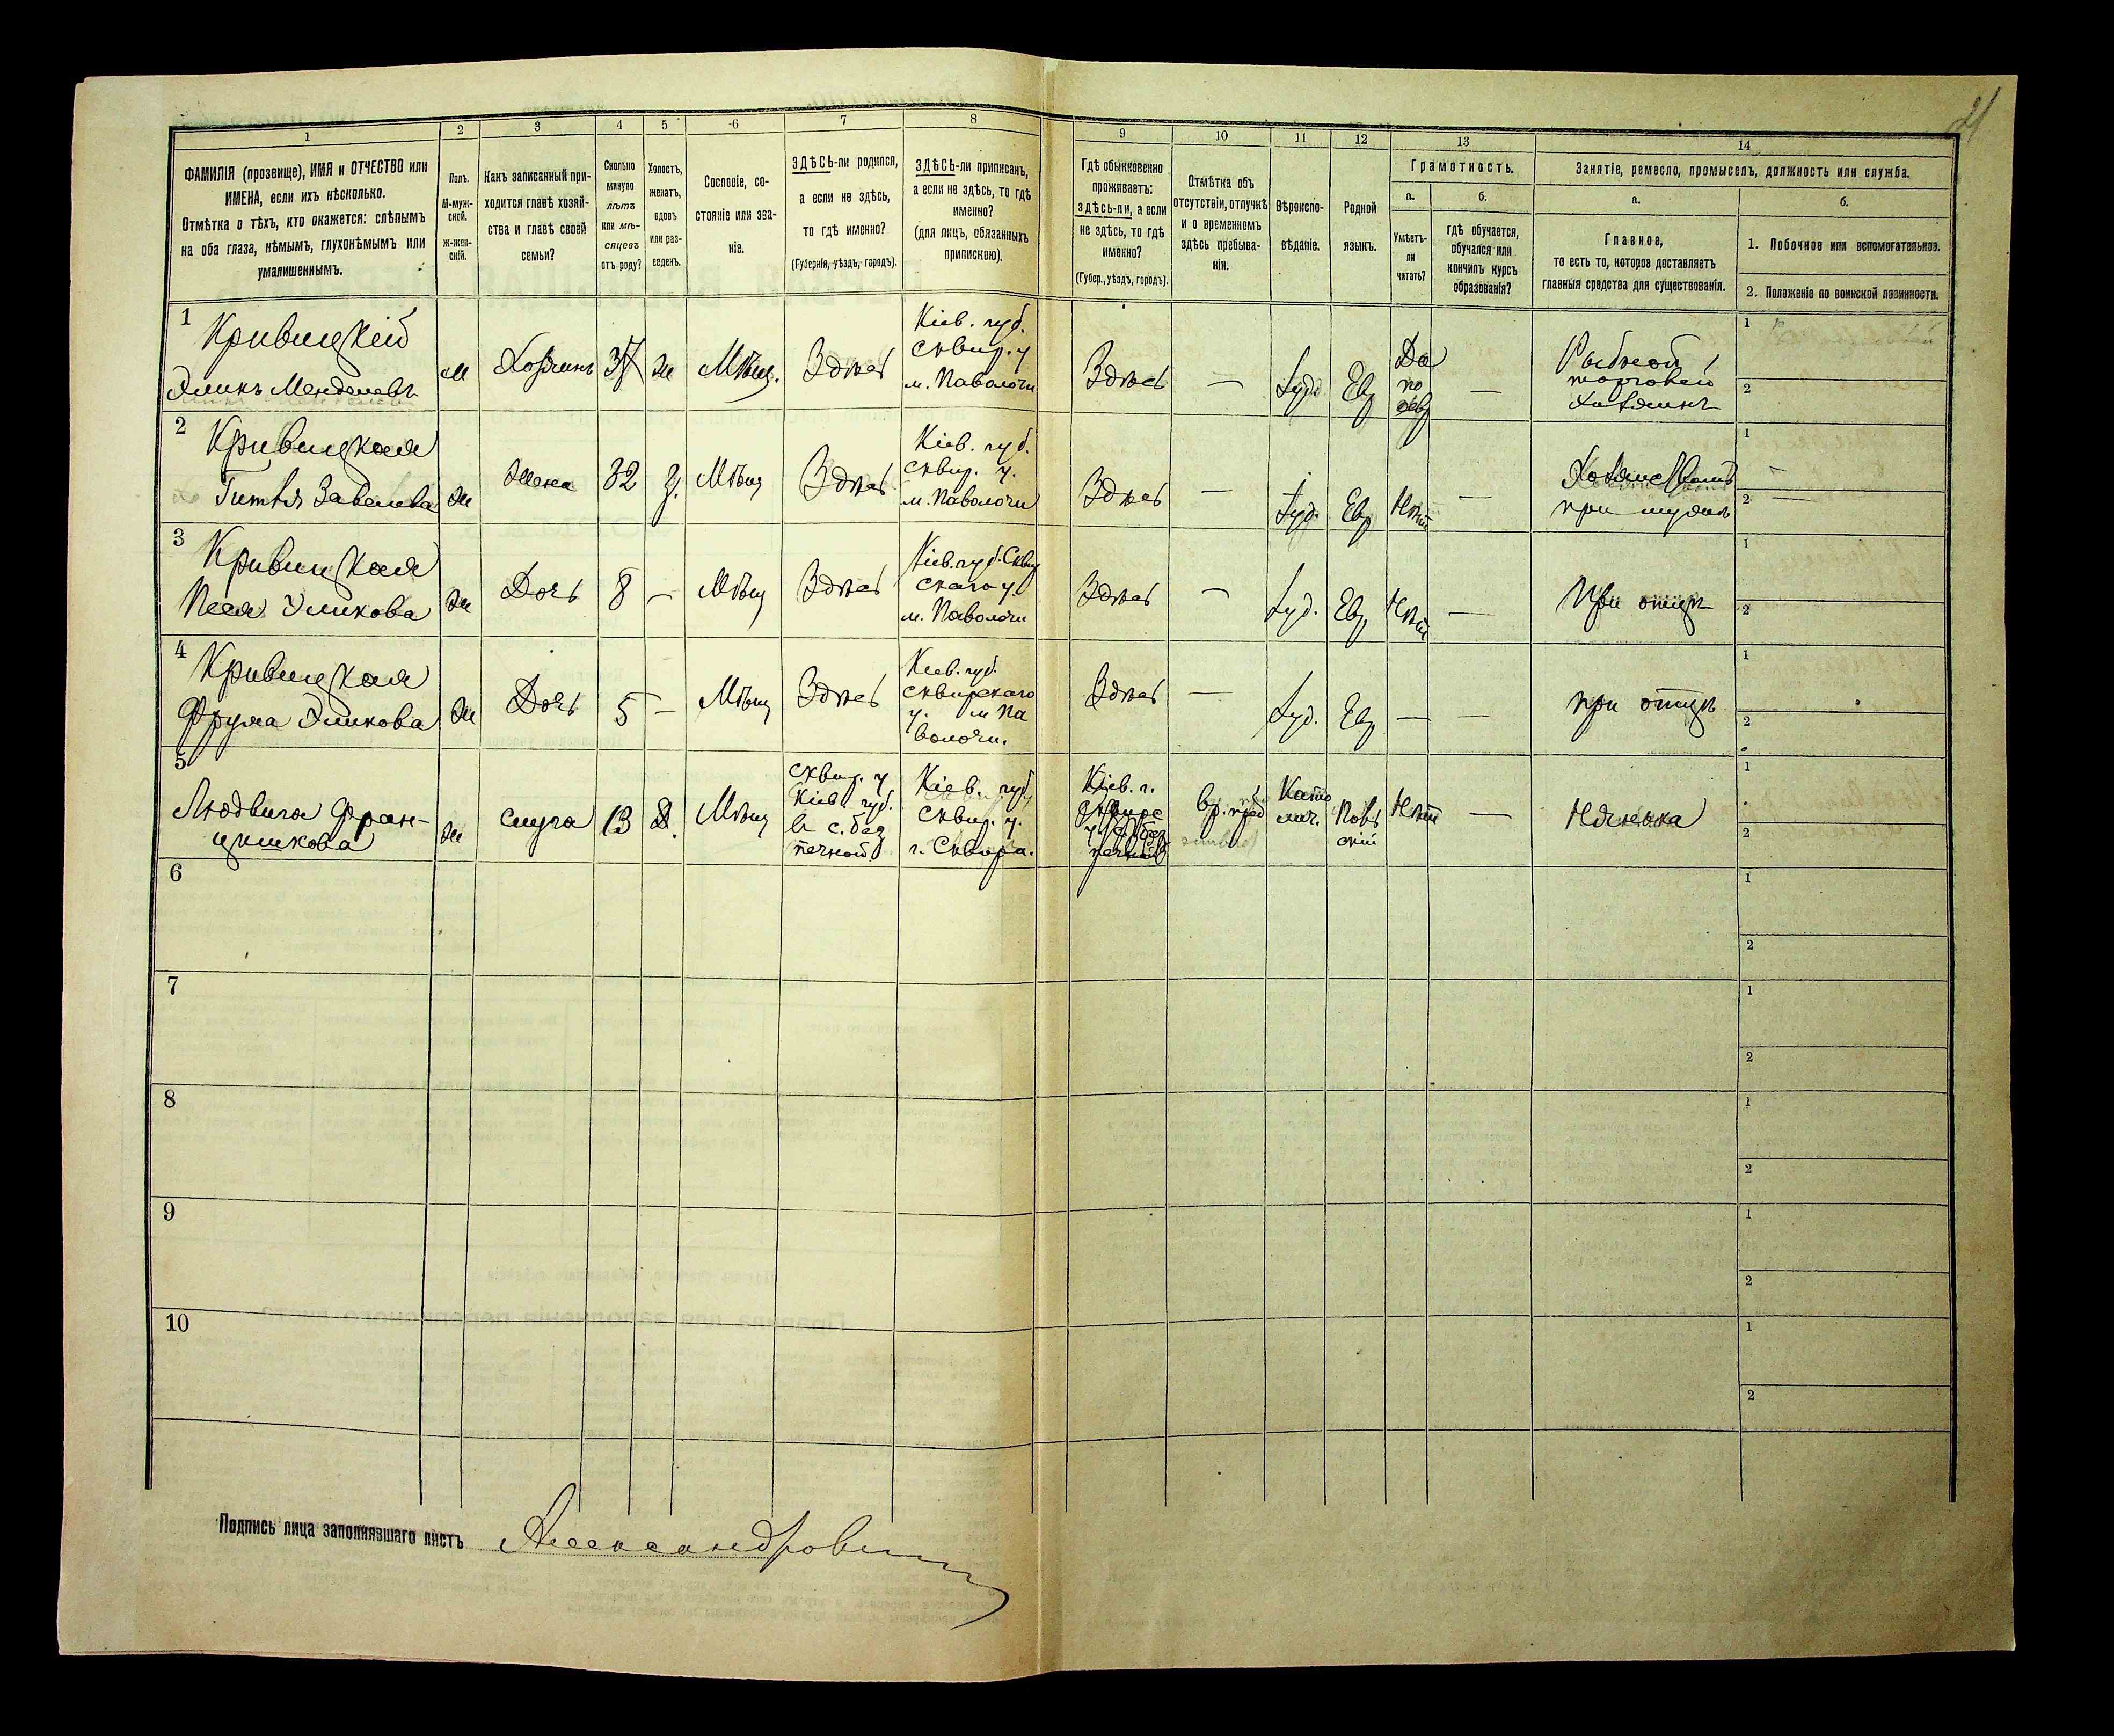 21
1
2
3
4
5
6
7
8
9
10
11
12
13
14
ФАМИЛІЯ (прозвище), ИМЯ и ОТЧЕСТВО или
ИМЕНА, если ихъ нѣсколько.
Отмѣтка о тѣхъ, кто окажется: слѣпымъ
на оба глаза, нѣмымъ, глухонѣмымъ или
умалишеннымъ.
Полъ.
М-муж-
ской.
ж-жен-
скій.
Какъ записанный при-
ходится главѣ хозяй-
ства и главѣ своей
семьи?
Сколько
минуло
лѣтъ
или мѣ-
сяцевъ
отъ роду?
Холостъ,
женатъ,
вдовъ
или раз-
веденъ.
Сословіе, со-
стояніе или зва-
ніе.
ЗДѢСЬ-ли родился,
а если не здѣсь,
то гдѣ именно?
(Губернія, уѣздъ, городъ).
ЗДѢСЬ-ли приписанъ,
а если не здѣсь, то гдѣ
именно?
(для лицъ, обязанныхъ
припискою).
Гдѣ обыкновенно
проживаетъ:
здѣсь-ли, а если
не здѣсь, то гдѣ
именно?
(Губер., уѣздъ, городъ).
Отмѣтка объ
отсутствіи, отлучкѣ
и о временномъ
здѣсь пребыва-
ніи.
Вѣроиспо-
вѣданіе.
Родной
языкъ.
Грамотность.
а.
Умѣетъ-
ли
читать?
б.
гдѣ обучается,
обучался или
кончилъ курсъ
образованія?
Занятіе, ремесло, промыселъ, должность или служба.
а.
Главное,
то есть то, которое доставляетъ
главныя средства для существованія.
б.
1. Побочное или вспомогательное.
2. Положеніе по воинской повинности.
1
Кривицкій
Эликъ Менделевъ
м
Хозяинъ
37
ж
Мѣщ.
Здѣсь
Кіев. губ.
сквир. у
м. Паволочи
Здѣсь
—
Іуд.
Евр
Да
по
евр
—
Рыбной
торговей
хозяинъ
1
2
2
Кривицкая
Гитля Завелева
ж
Жена
32
з.
Мѣщ
Здѣсь
Кіев. губ.
сквир. у.
м. Паволочи
Здѣсь
—
Іуд.
Евр
Нѣт
—
при мужѣ
1
—
2
—
3
Кривицкая
Песя Эликова
ж
Дочь
8
—
Мѣщ
Здѣсь
Кіев. губ. Сквир
скаго у.
м. Паволочи
Здѣсь
—
Іуд.
Евр
Нѣт
—
При отцѣ
1
2
4
Кривицкая
Фрума Эликова
ж
Дочь
5
—
Мѣщ
Здѣсь
Кіев. губ.
сквирскаго
у. м Па
волочи.
Здѣсь
—
Іуд.
Евр
—
—
при отцѣ
1
2
5
Людвига Фран-
цишкова
ж
слуга
13
Мѣщ
сквир. у
Кіев. губ.
въ с. без
печной
Кіев. губ
Сквир. у.
г. Сквира.
Кіев. г.
Сквирс
у. с. без
печной
вр. преб
Като
лич.
Поль
скій
Нѣт
—
Нянька
1
2
6
1
2
7
1
2
8
1
2
9
1
2
10
1
2
Подпись лица заполнявшаго листъ Александрович